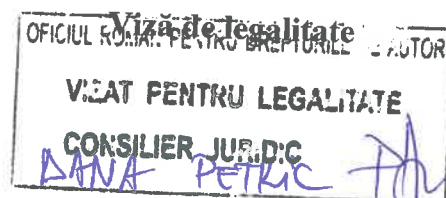 Viză de legalitate
OFICIUL ROMÂN PENTRU DREPTURILE DE AUTOR
VIZAT PENTRU LEGALITATE
CONSILIER JURIDIC
DANA PETRIC